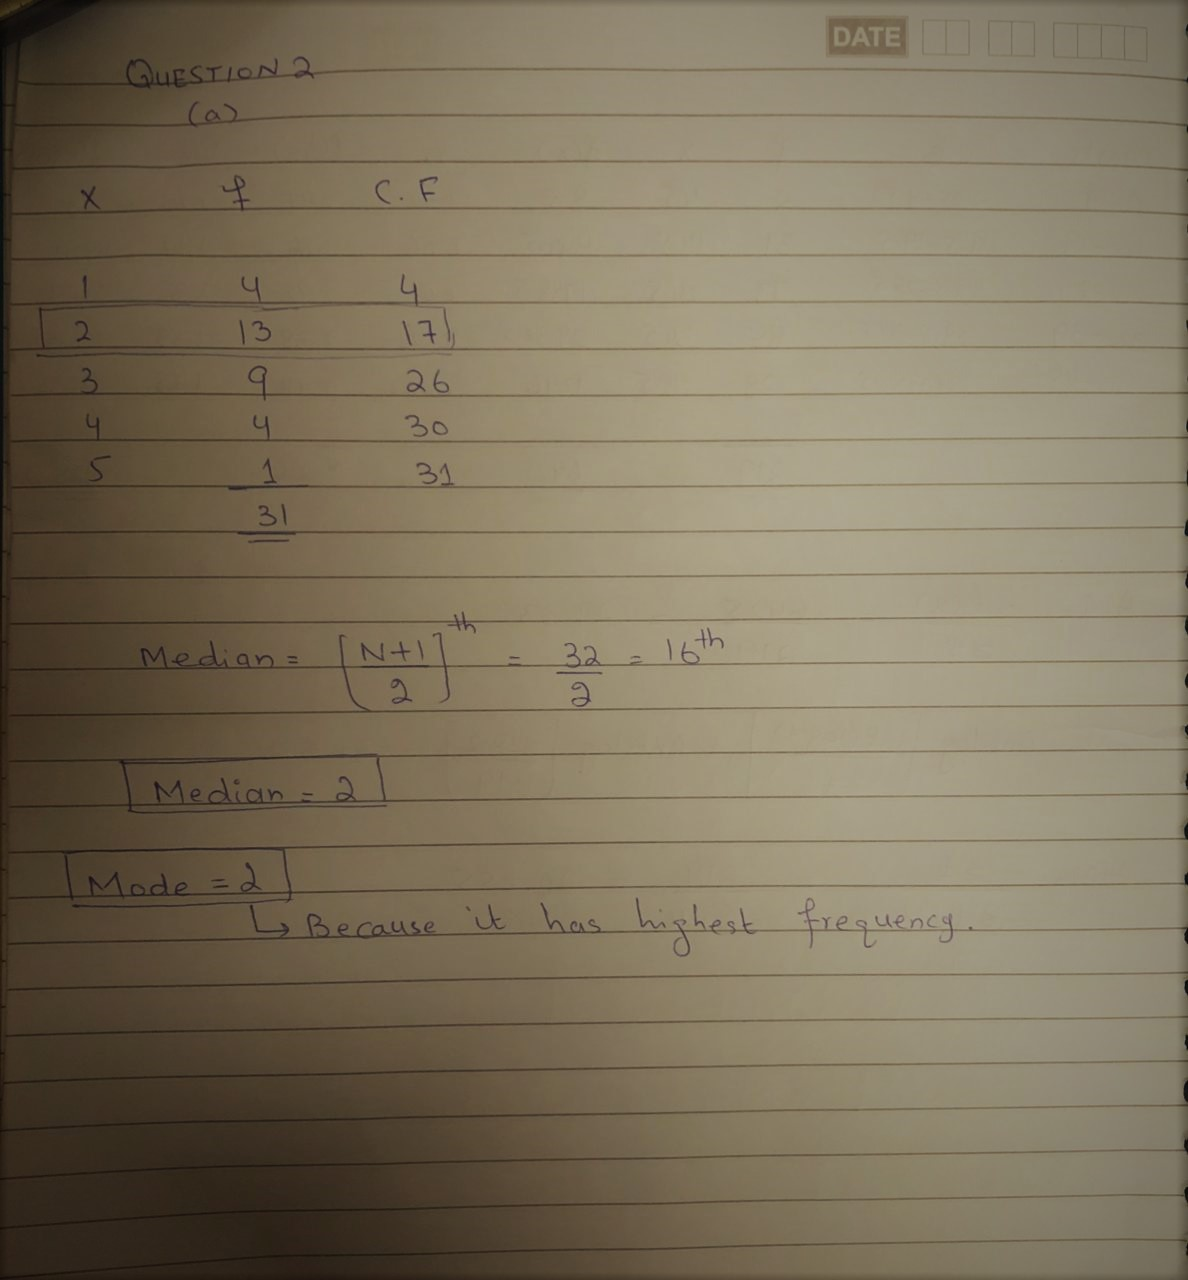 DATE
QUESTION 2
(a)
x f C.F
1 4 4
2 13 17
3 9 26
4 4 30
5 1 31
31
Median = [N+1/2]th = 32/2 = 16th
Median = 2
Mode = 2
↳ Because it has highest frequency.